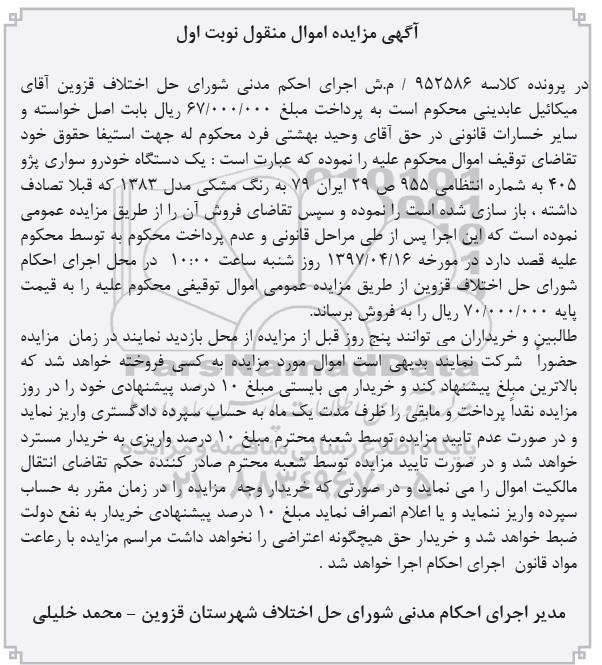 آگهی مزایده اموال منقول نوبت اول
در پرونده کلاسه ۹۵۲۵۸۶ / م.ش اجرای احکم مدنی شورای حل اختلاف قزوین آقای
میکائیل عابدینی محکوم است به پرداخت مبلغ ۶۷/۰۰۰/۰۰۰ ریال بابت اصل خواسته و
سایر خسارات قانونی در حق آقای وحید بهشتی فرد محکوم له جهت استیفا حقوق خود
تقاضای توقیف اموال محکوم علیه را نموده که عبارت است : یک دستگاه خودرو سواری پژو
۴۰۵ به شماره انتظامی ۹۵۵ ص ۲۹ ایران ۷۹ به رنگ مشکی مدل ۱۳۸۳ که قبلا تصادف
داشته ، باز سازی شده است را نموده و سپس تقاضای فروش آن را از طریق مزایده عمومی
نموده است که این اجرا پس از طی مراحل قانونی و عدم پرداخت محکوم به توسط محکوم
علیه قصد دارد در مورخه ۱۳۹۷/۰۴/۱۶ روز شنبه ساعت ۱۰:۰۰ در محل اجرای احکام
شورای حل اختلاف قزوین از طریق مزایده عمومی اموال توقیفی محکوم علیه را به قیمت
پایه ۷۰/۰۰۰/۰۰۰ ریال را به فروش برساند.
طالبین و خریداران می توانند پنج روز قبل از مزایده از محل بازدید نمایند در زمان مزایده
حضوراً شرکت نمایند بدیهی است اموال مورد مزایده به کسی فروخته خواهد شد که
بالاترین مبلغ پیشنهاد کند و خریدار می بایستی مبلغ ۱۰ درصد پیشنهادی خود را در روز
مزایده نقداً پرداخت و مابقی را ظرف مدت یک ماه به حساب سپرده دادگستری واریز نماید
و در صورت عدم تایید مزایده توسط شعبه محترم مبلغ ۱۰ درصد واریزی به خریدار مسترد
خواهد شد و در صورت تایید مزایده توسط شعبه محترم صادر کننده حکم تقاضای انتقال
مالکیت اموال را می نماید و در صورتی که خریدار وجه مزایده را در زمان مقرر به حساب
سپرده واریز ننماید و یا اعلام انصراف نماید مبلغ ۱۰ درصد پیشنهادی خریدار به نفع دولت
ضبط خواهد شد و خریدار حق هیچگونه اعتراضی را نخواهد داشت مراسم مزایده با رعاعت
مواد قانون اجرای احکام اجرا خواهد شد .
مدیر اجرای احکام مدنی شورای حل اختلاف شهرستان قزوین – محمد خلیلی
ParsNamadData
پایگاه اطلاع رسانی مناقصه و مزایده
۰۲۱-۸۸۳۴۹۶۷۰-۵